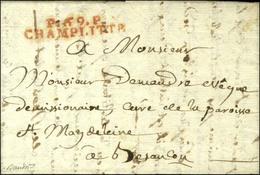 P. 69. P.
CHAMPLITTE
A Monsieur
Monsieur Demandre evêque
demissionaire, curé de la paroisse
Ste Magdeleine
a besancon